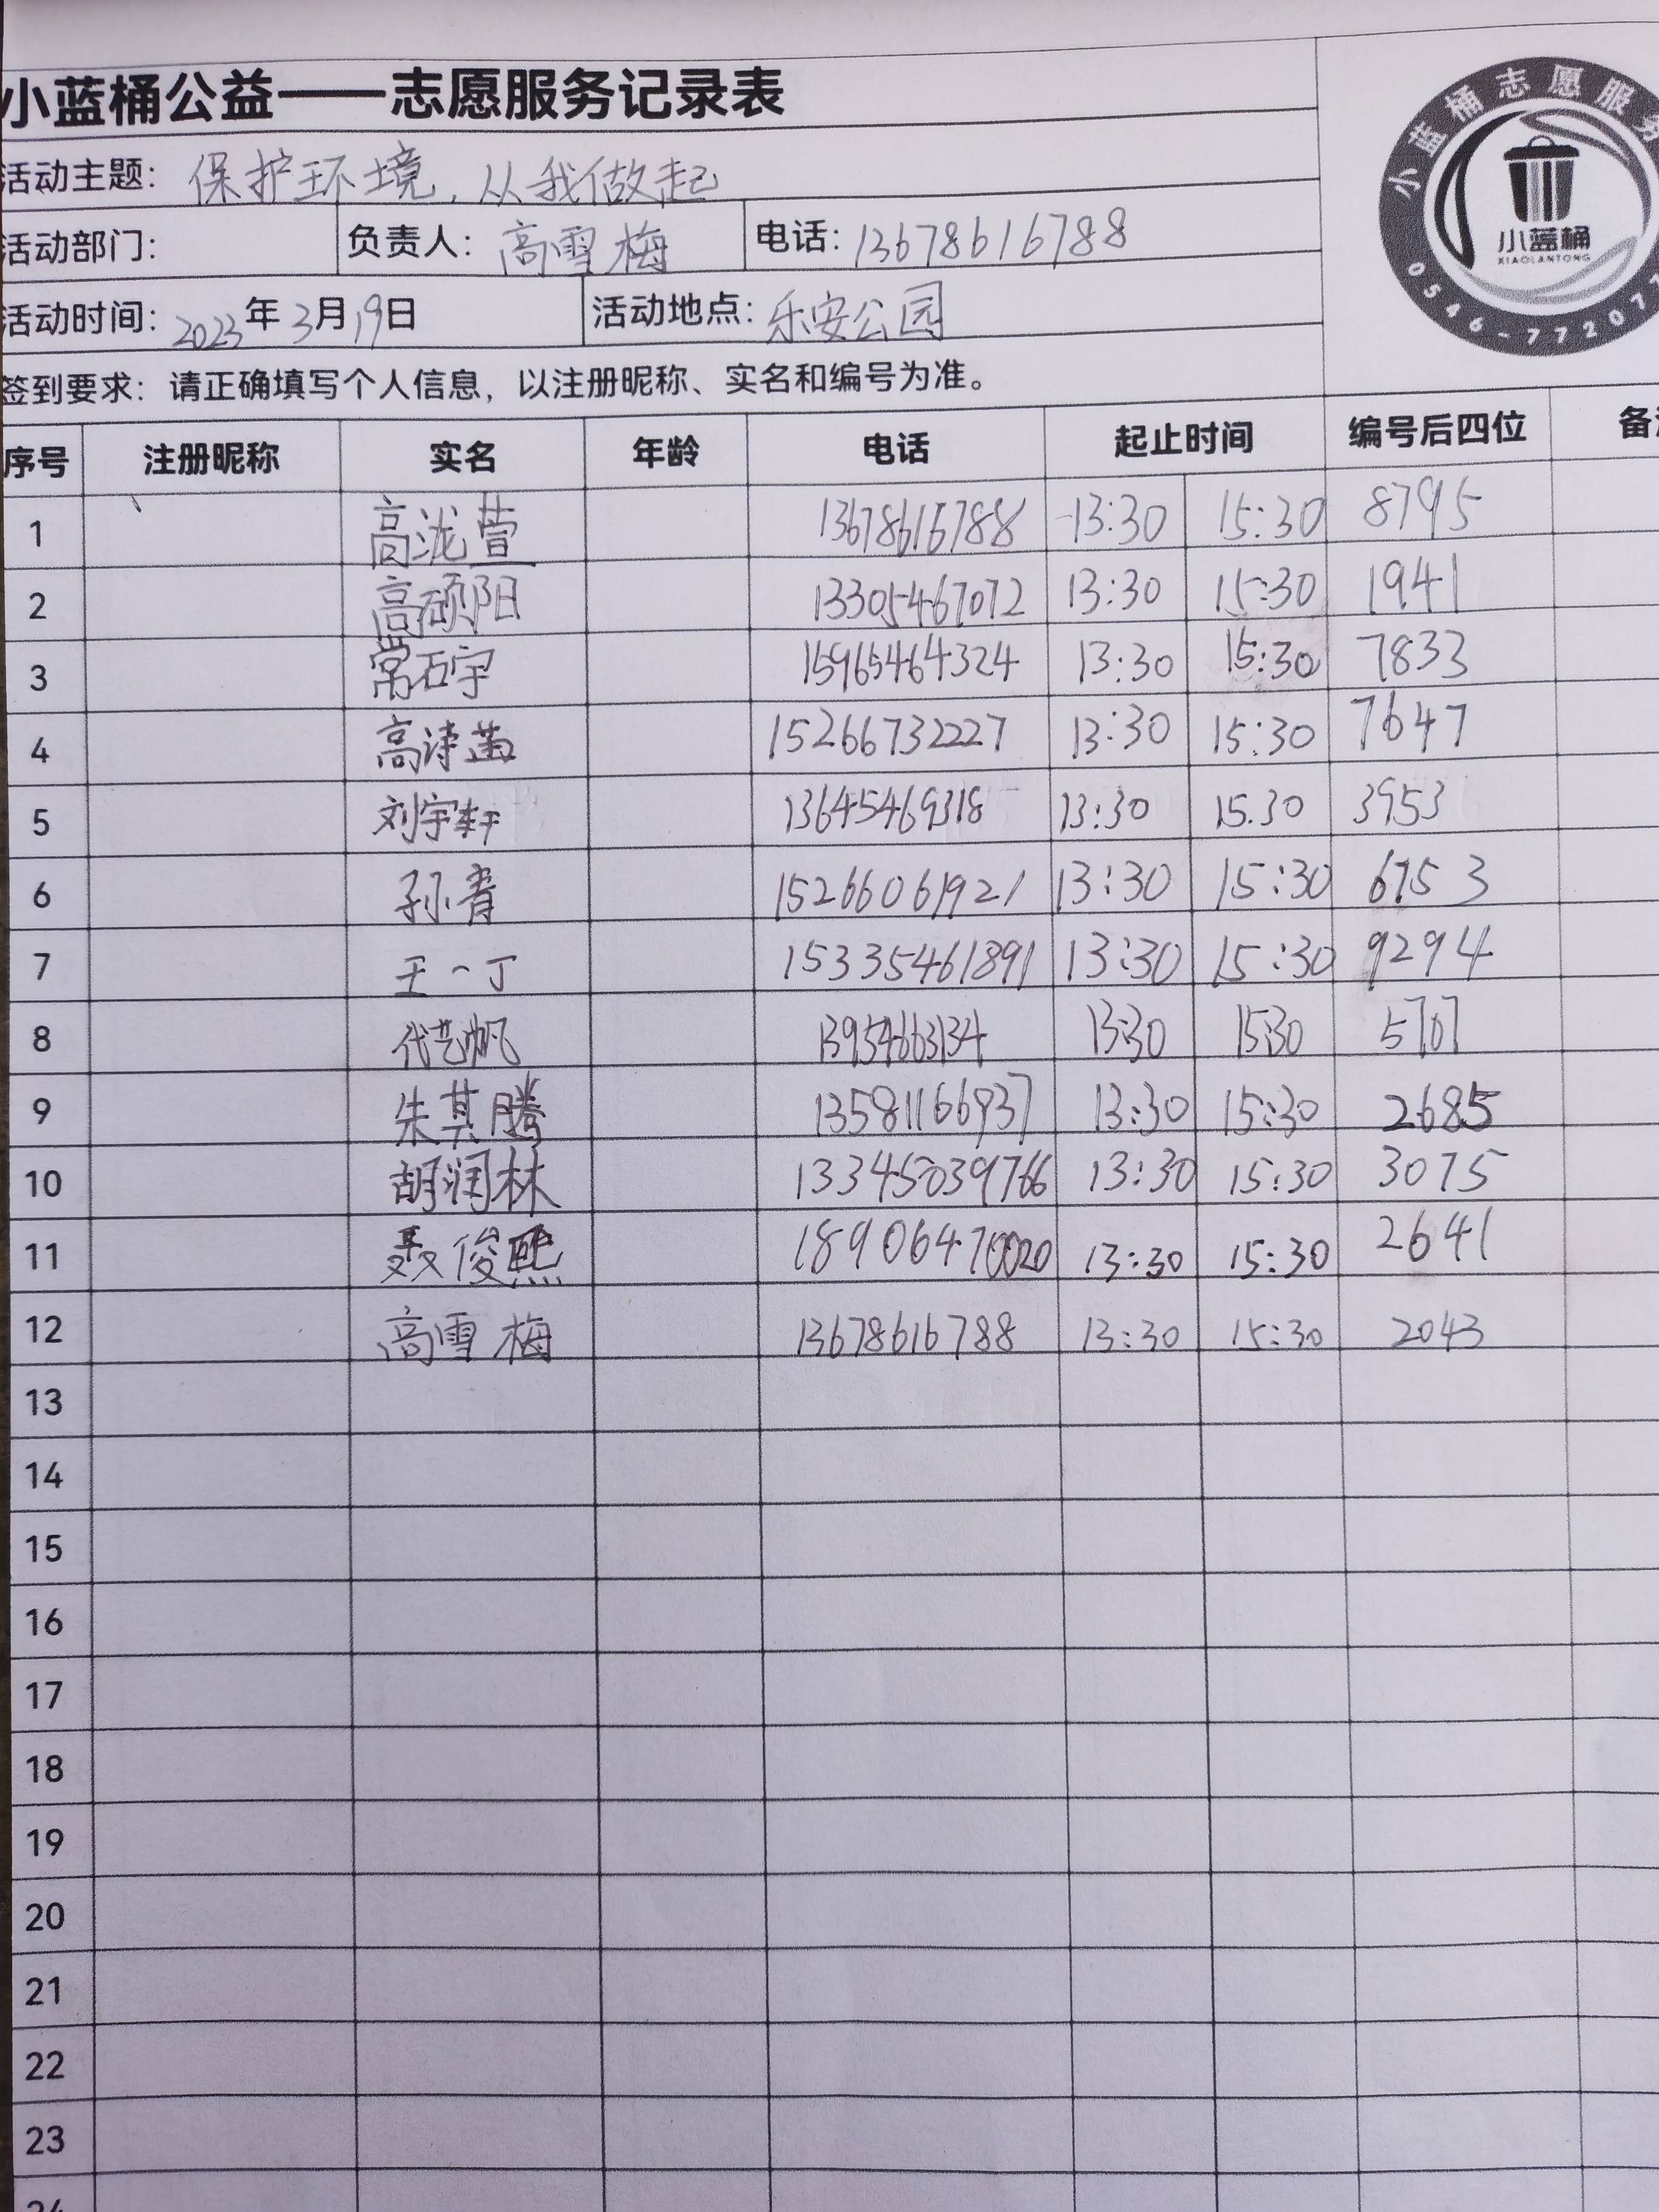 小蓝桶公益——志愿服务记录表
活动主题：保护环境，从我做起
活动部门： 负责人：高雪梅 电话：13678616788
活动时间：2023年3月19日 活动地点：乐安公园
签到要求：请正确填写个人信息，以注册昵称、实名和编号为准。
小蓝桶志愿服务
小蓝桶
XIAOLANTONG
0546-772077
序号 注册昵称 实名 年龄 电话 起止时间 编号后四位
1 高泷萱 13678616788 13:30 15:30 8795
2 高硕阳 13305467072 13:30 15:30 1941
3 常石宇 15965464324 13:30 15:30 7833
4 高诗菡 15266732227 13:30 15:30 7647
5 刘宇轩 13645469318 13:30 15.30 3953
6 孙青 15266061921 13:30 15:30 6753
7 王一丁 15335461891 13:30 15:30 9294
8 代艺帆 13954663134 13:30 15:30 5707
9 朱其腾 13581166937 13:30 15:30 2685
10 胡润林 13:30 15:30 3075
11 聂俊熙 13:30 15:30 2641
12 高雪梅 13678616788 13:30 15:30 2043
13
14
15
16
17
18
19
20
21
22
23
24